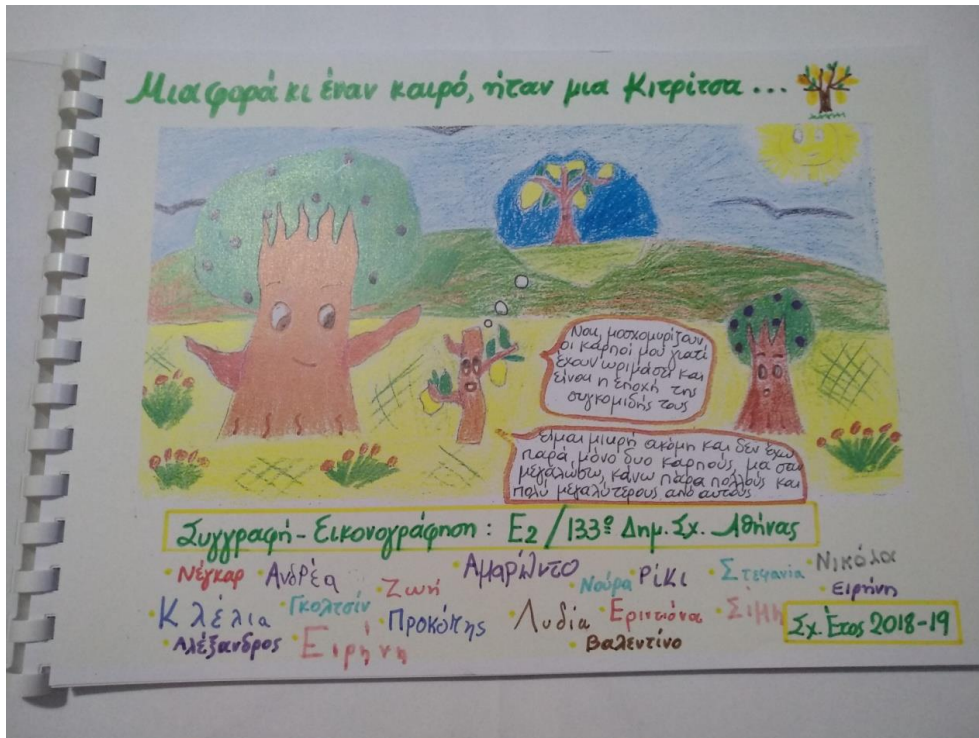 Μια φορά κι έναν καιρό, ήταν μια Κιτρίτσα...
Ναι, μοσχομυρίζουν
οι καρποί μου γιατί
έχουν ωριμάσει και
είναι η εποχή της
συγκομιδής τους
είμαι μικρή ακόμη και δεν έχω
παρά μόνο δυο καρπούς, μα σαν
μεγαλώσω, κάνω πάρα πολλούς και
πολύ μεγαλύτερους από αυτούς
Συγγραφή - Εικονογράφηση: Ε2/133ο Δημ. Σχ. Αθήνας
• Νέγκαρ • Ανδρέα • Ζωή • Αμαρίλντο • Νούρα • Ρίκι • Στεφανία • Νικόλα
• Κλέλια • Γκολτσίν • Προκόπης • Λυδία • Εριντιόνα • Σίμη • Ειρήνη
• Αλέξανδρος • Ειρήνη • Βαλεντίνο
Σχ. Έτος 2018-19